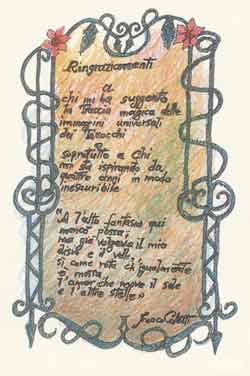 Ringraziamenti
a
chi mi ha suggerito
la traccia magica delle
immagini universali
dei Tarocchi
sopratutto a Chi
mi sta ispirando da
quattro anni in modo
inesauribile
"A l'alta fantasia qui
mancò possa;
ma già volgeva il mio
disio e 'l velle
sì come rota ch'igualmente
è mossa,
l'amor che move il sole
e l'altre stelle"